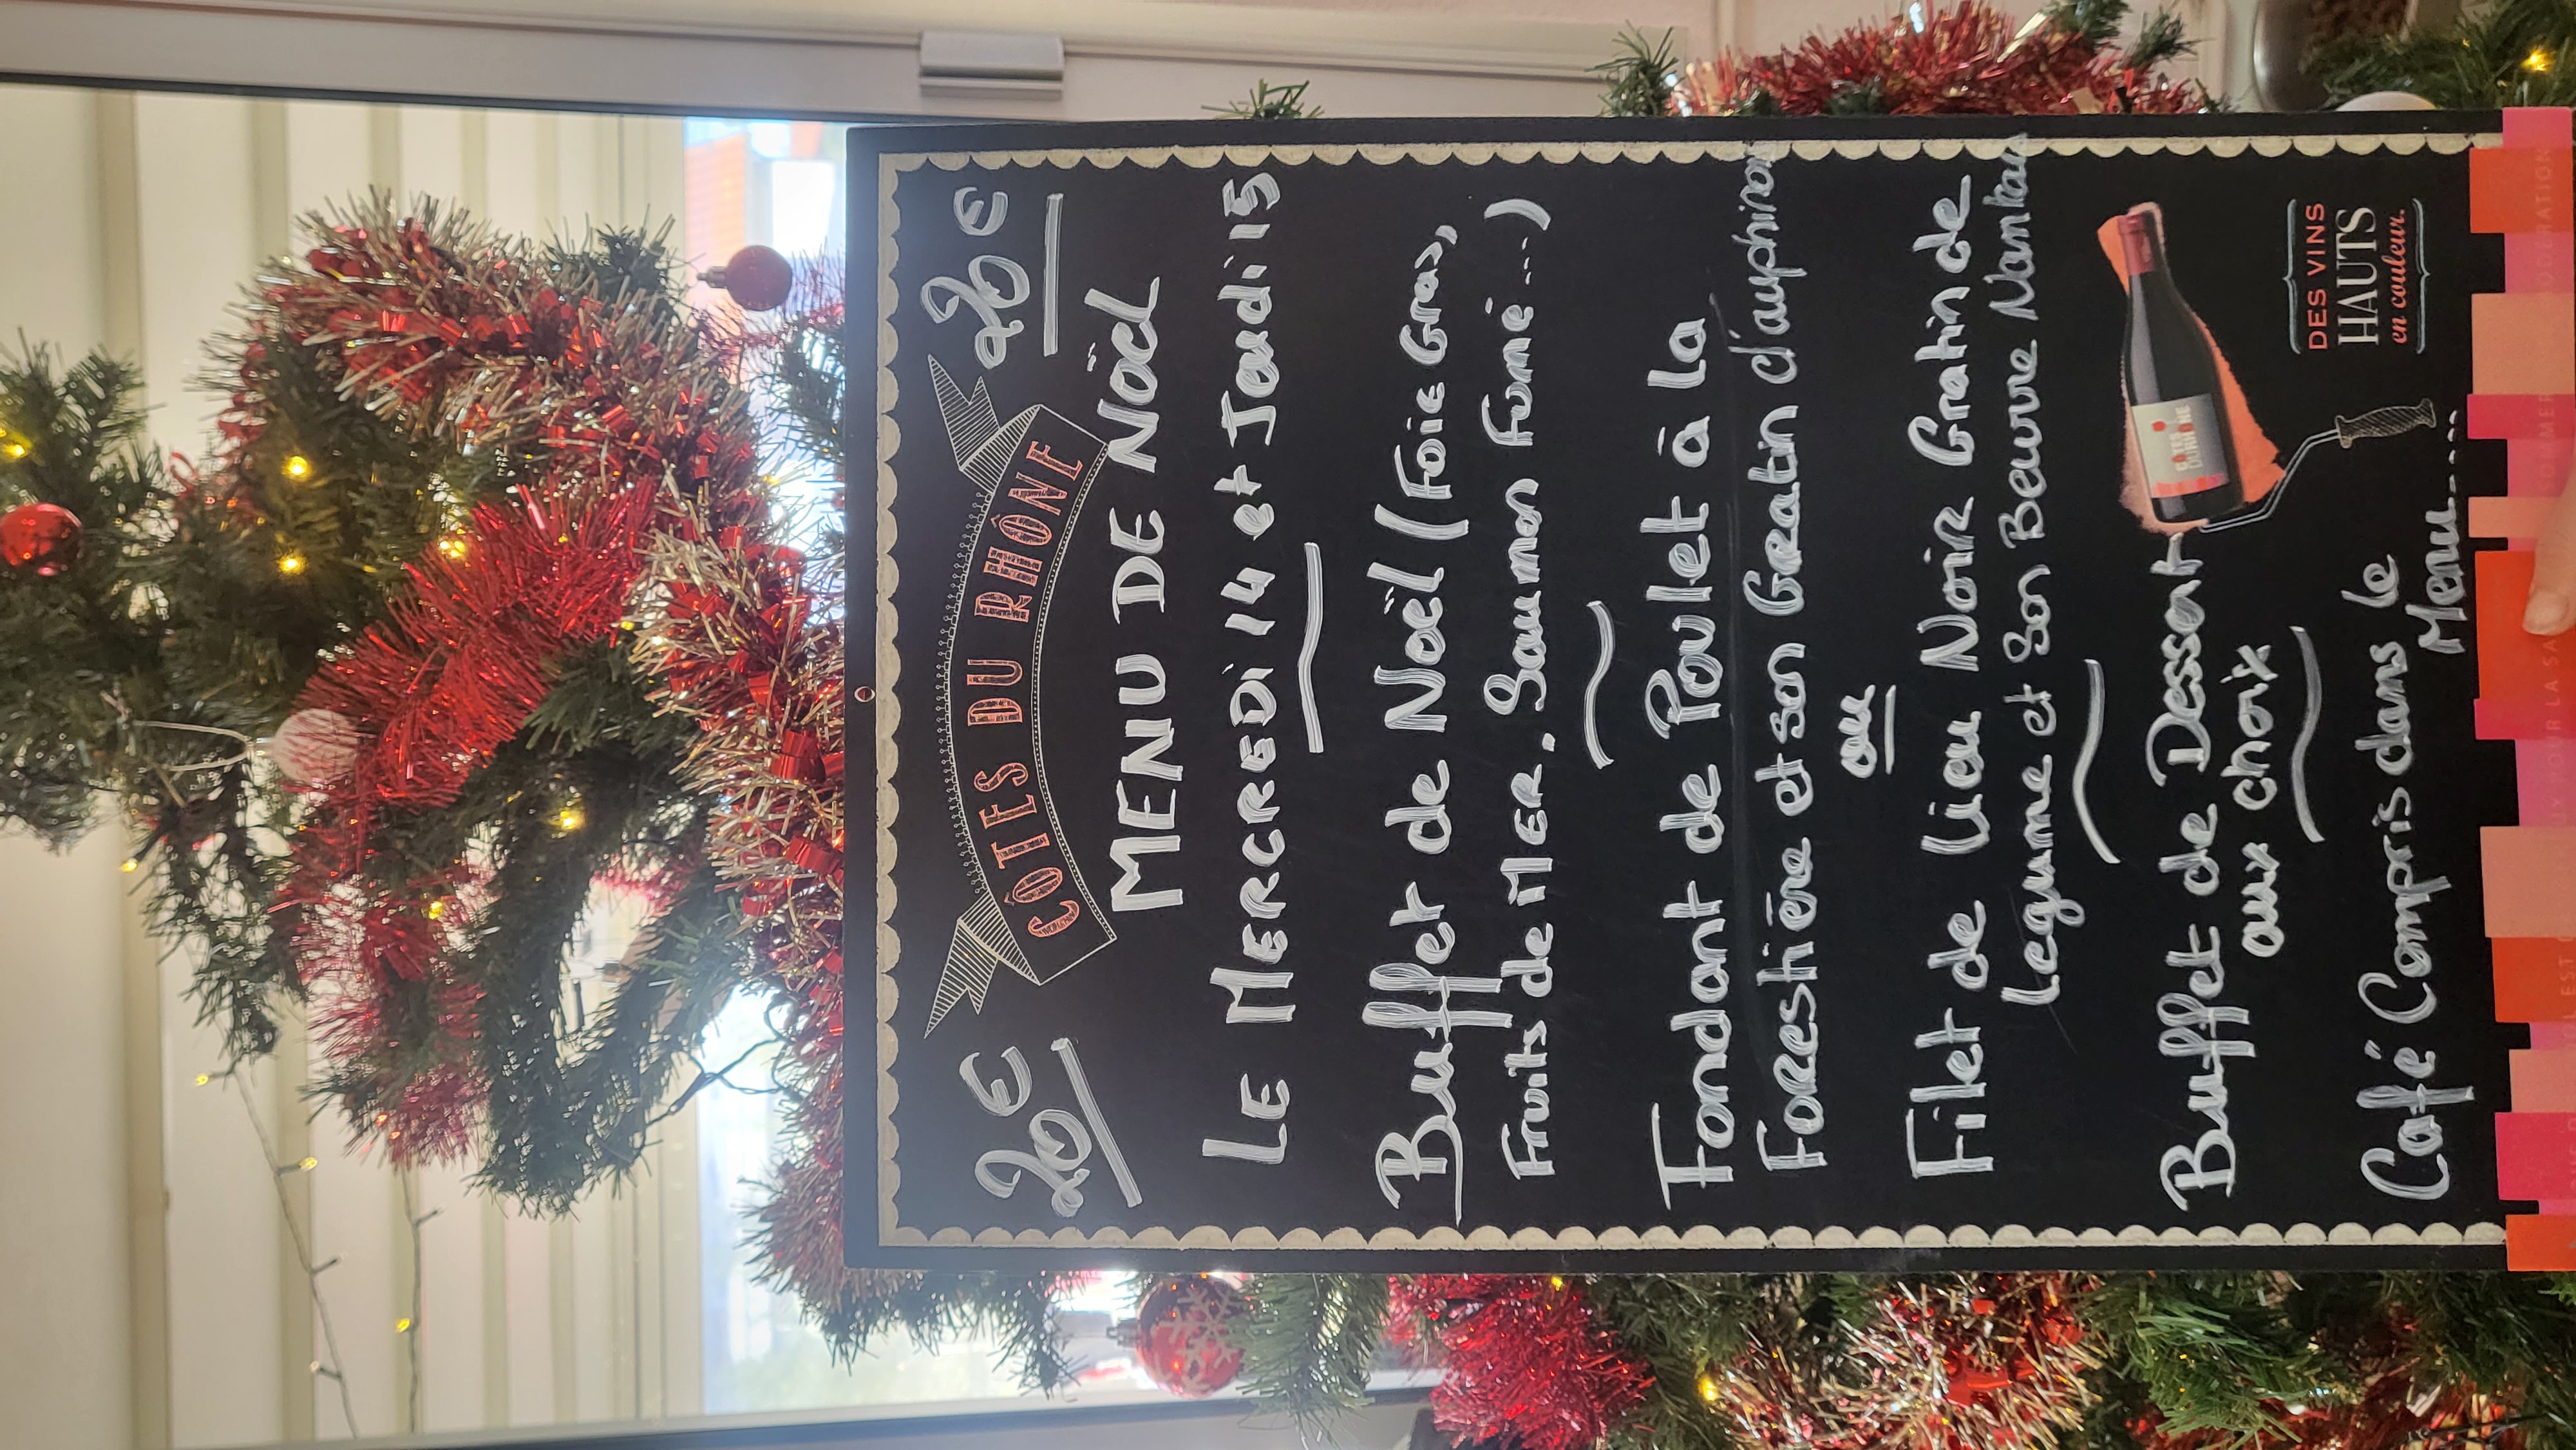 20€ CÔTES DU RHÔNE 20€
MENU DE NOËL
LE MERCREDI 14 et Jeudi 15
Buffet de Noël (Foie Gras,
Fruits de MER. Saumon Fumé...)
Fondant de Poulet à la
Forestière et son Gratin d'auphinois
ou
Filet de lieu Noir Gratin de
Legume et Son Beurre Nantais
Buffet de Dessert
aux choix
CÔTES DU RHÔNE
DES VINS
HAUTS
en couleur.
Café Compris dans le
Menu.....